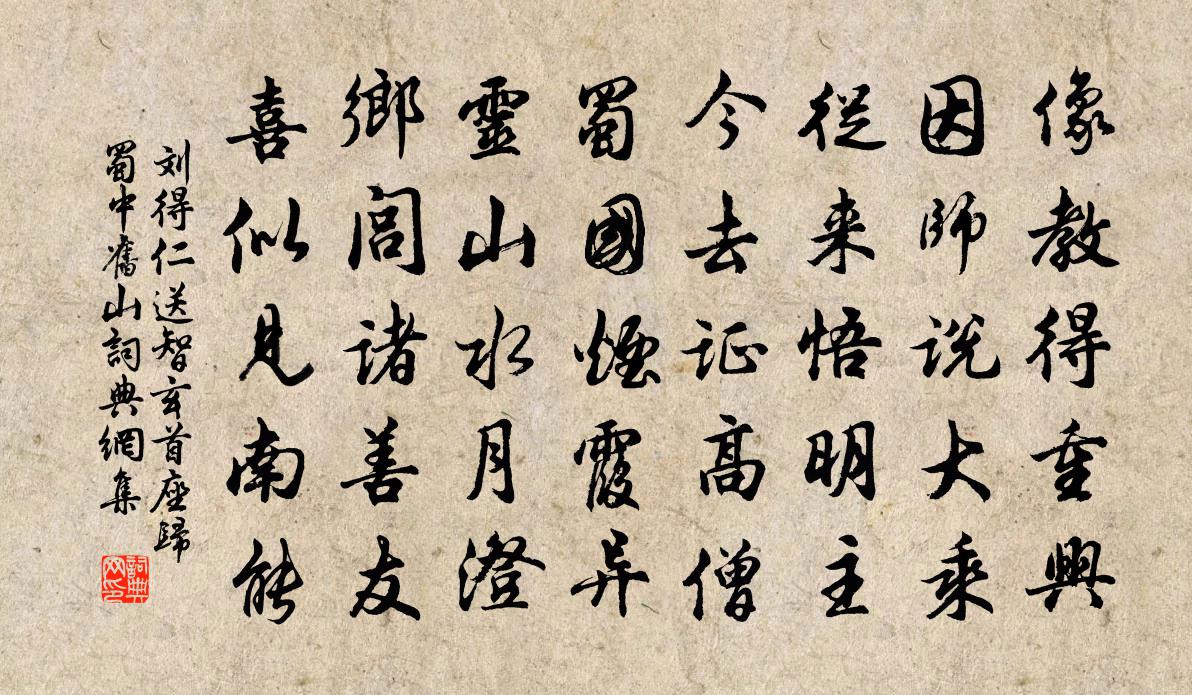 像教得重興
因師説大乘
從来悟明主
今去证高僧
蜀國煙霞异
靈山水月澄
鄉閭诸善友
喜似見南能
刘得仁送智玄首座歸
蜀中舊山詞典網集
詞典网印